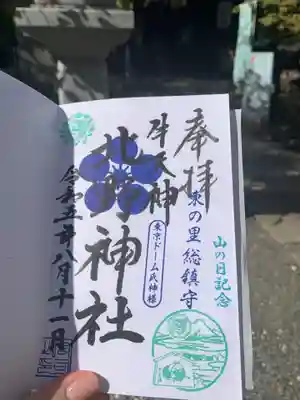 奉拝
山の日記念
氷の里総鎮守
牛天神
東京ドーム氏神様
北野神社
令和五年八月十一日